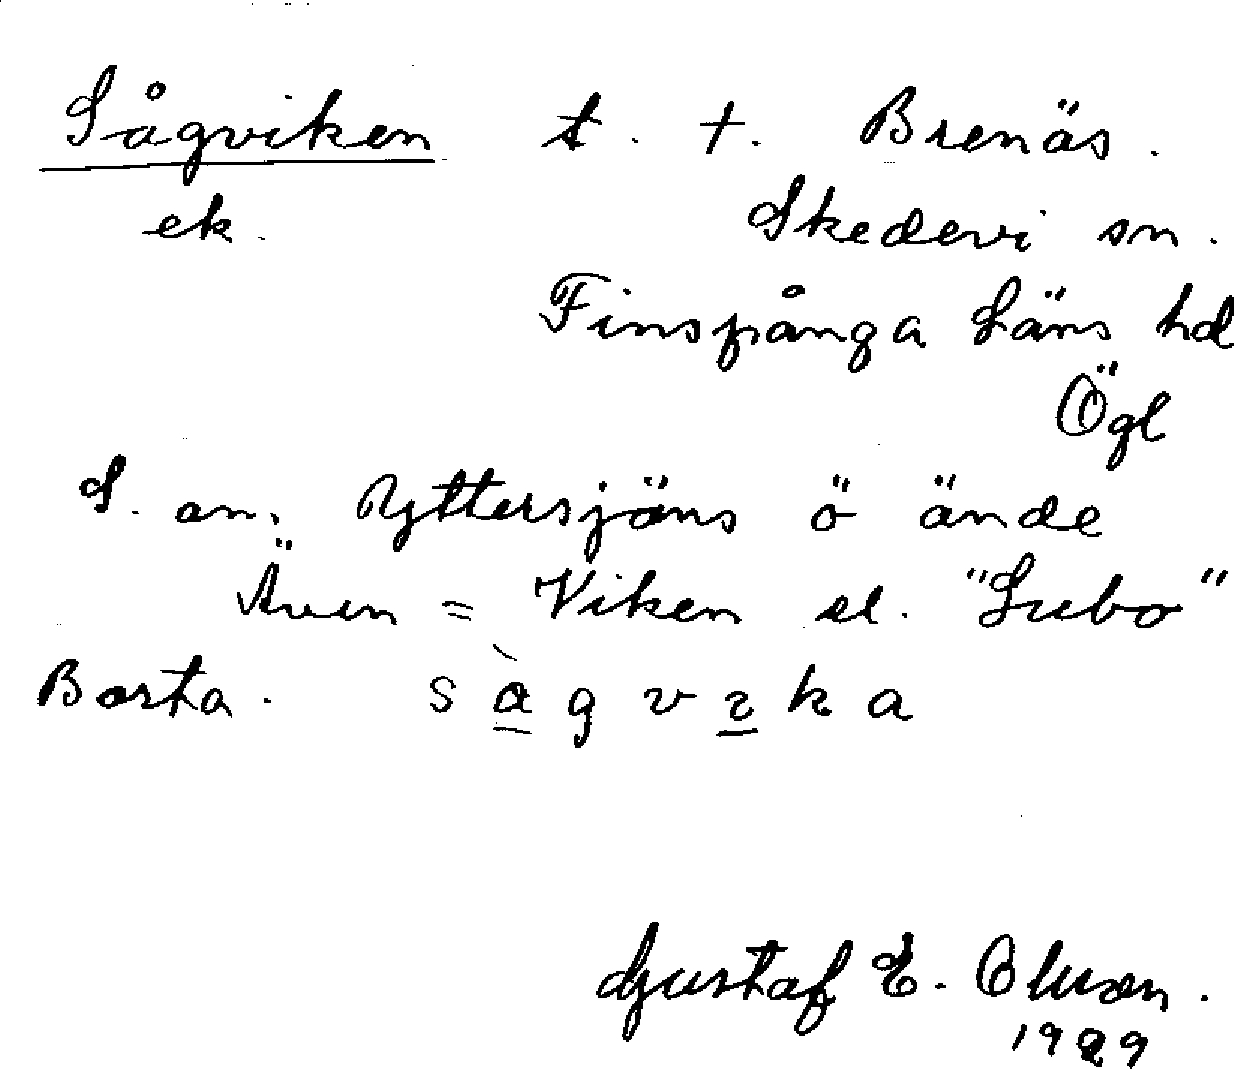 Sågviken t. t. Brenäs.
ek. Skedevi sn.
Finspånga Läns hd
Ögl
S. om. Ryttersjöns ö ände
Även = Viken el. "Lubo"
Borta. sàgvıka
Gustaf E. Olsson.
1929